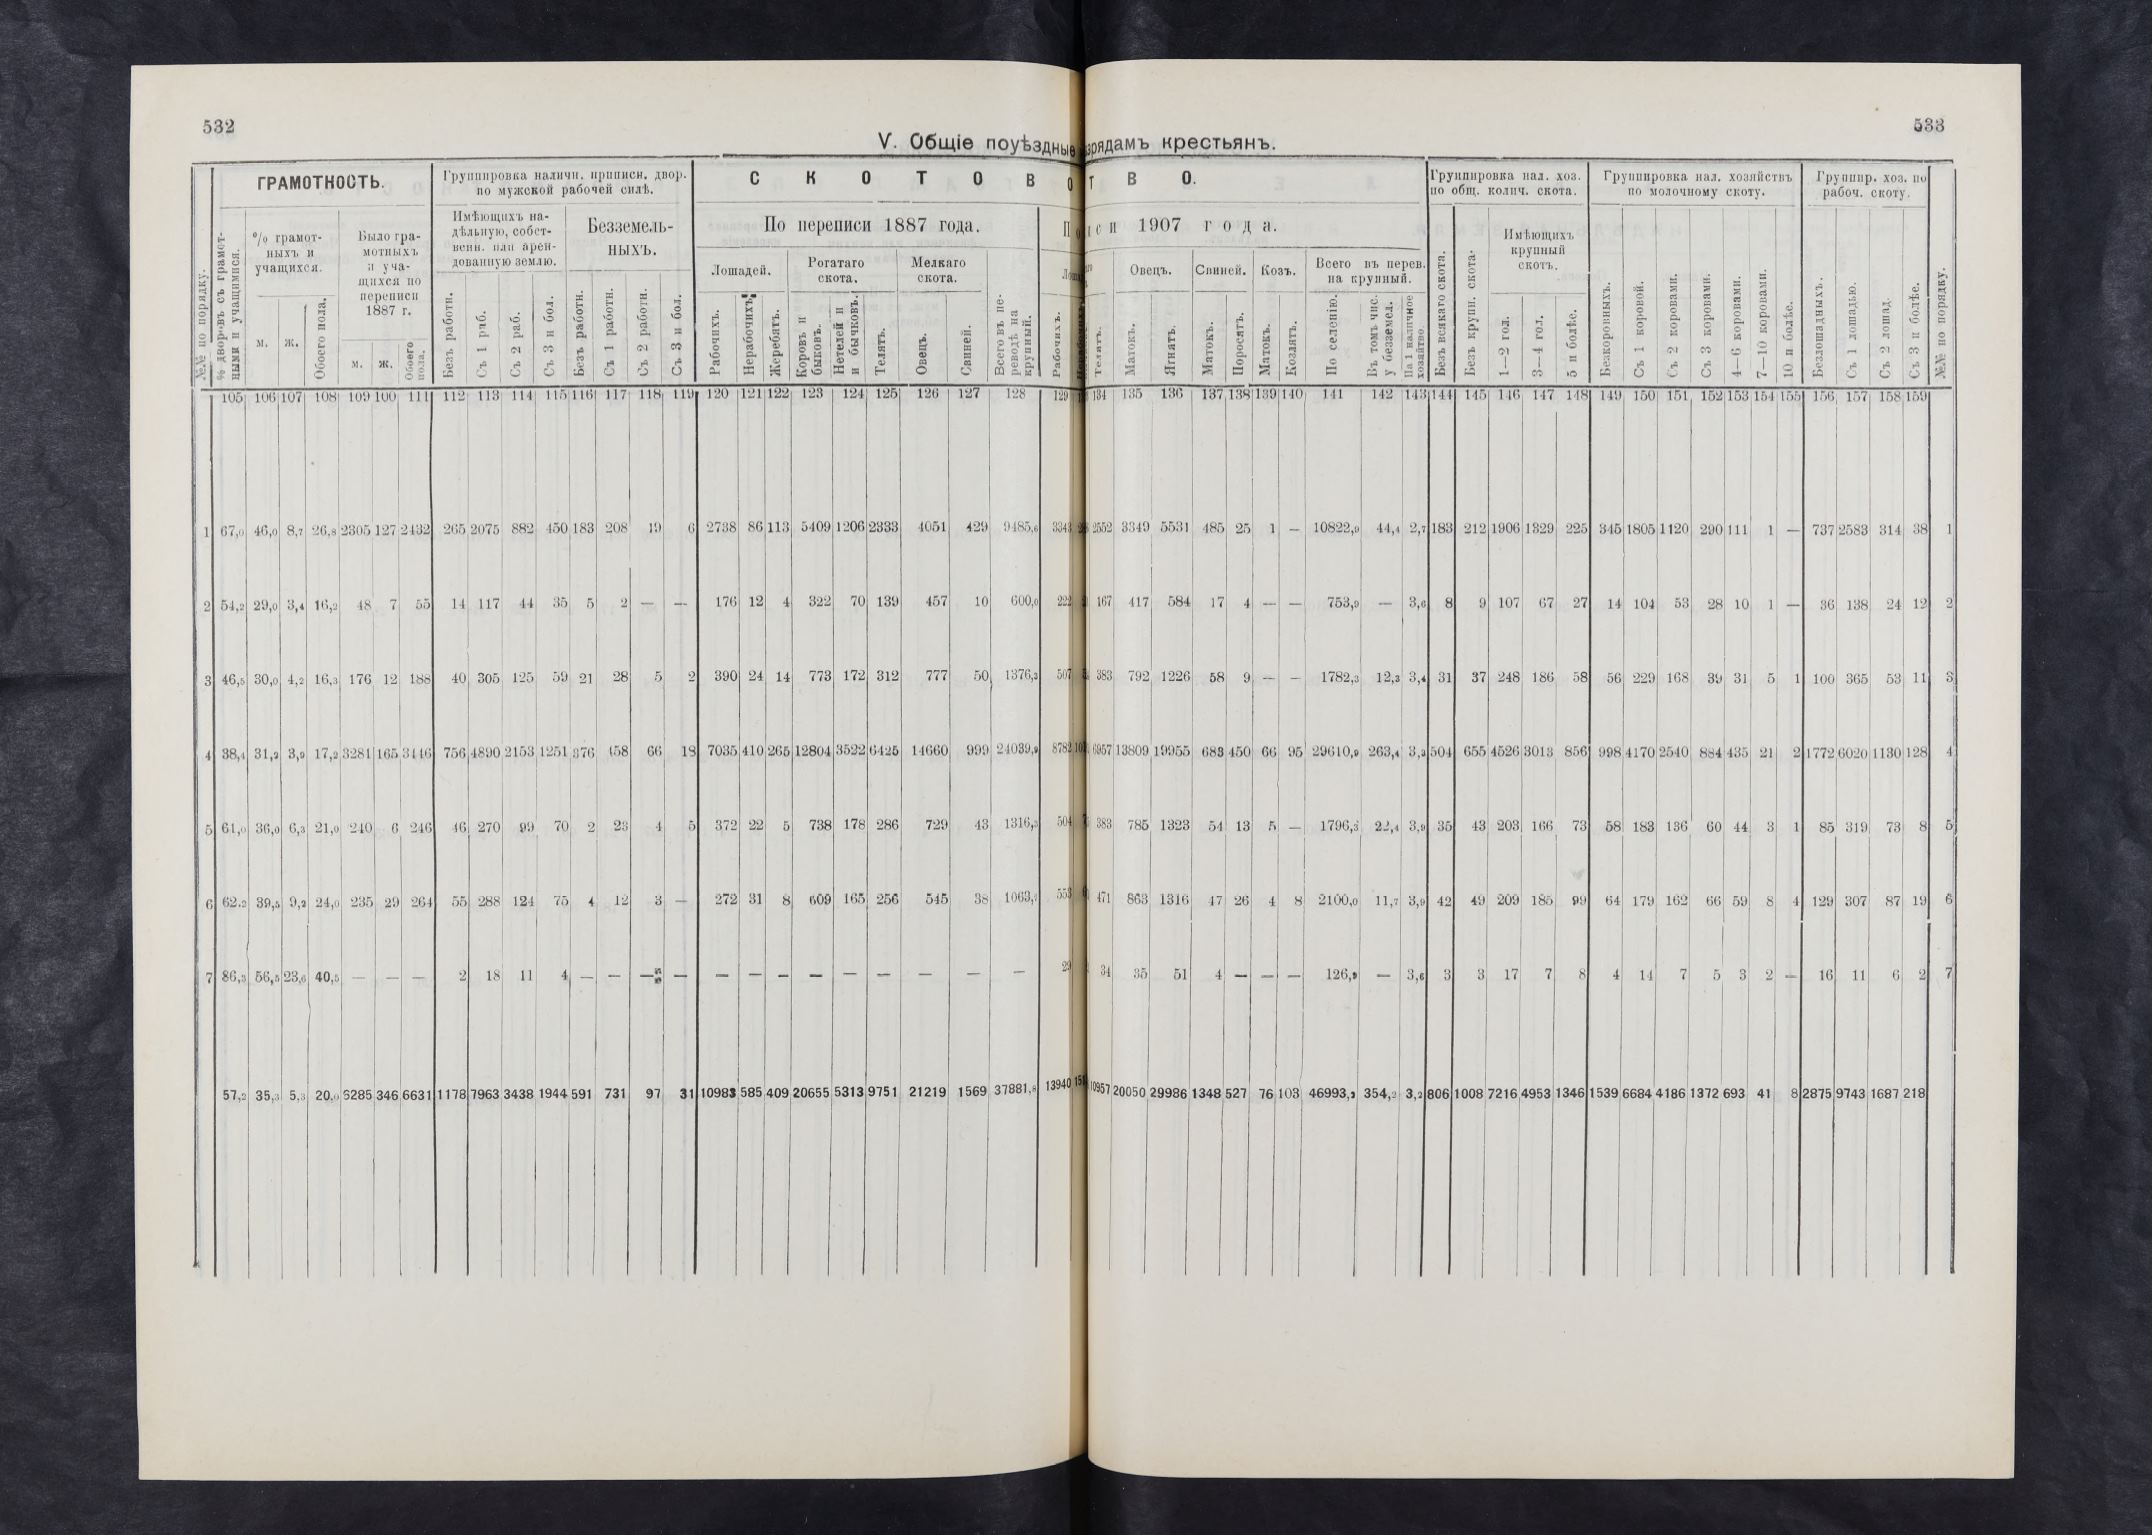 532
533
V. Общіе поуѣздные
зрядамъ крестьянъ.
№№ по порядку.
ГРАМОТНОСТЬ.
% дворовъ съ грамотными и учащимися.
% грамотныхъ и учащихся.
м. ж. Обоего пола.
Было грамотныхъ и учащихся по переписи 1887 г.
м. ж. Обоего пола.
Группировка наличн. приписн. двор. по мужской рабочей силѣ.
Имѣющихъ надѣльную, собственн. или арендованную землю.
Безъ работн. Съ 1 раб. Съ 2 раб. Съ 3 и бол.
Безземельныхъ.
Безъ работн. Съ 1 работн. Съ 2 работн. Съ 3 и бол.
С К О Т О В О
Т В О.
По переписи 1887 года.
Лошадей.
Рабочихъ. Нерабочихъ. Жеребятъ.
Рогатаго скота.
Коровъ и быковъ. Нетелей и бычковъ. Телятъ.
Мелкаго скота.
Овецъ. Свиней.
Всего въ переводѣ на крупный.
си 1907 года.
Рабочихъ.
Телятъ.
Овецъ.
Матокъ. Ягнятъ.
Свиней.
Матокъ. Поросятъ.
Козъ.
Матокъ. Козлятъ.
Всего въ перев. на крупный.
По селенію. Въ томъ чис. у безземел. На 1 наличное хозяйтво.
Группировка нал. хоз. по общ. колич. скота.
Безъ всякаго скота. Безъ крупн. скота.
Имѣющихъ крупный скотъ.
1—2 гол. 3—4 гол. 5 и болѣе.
Группировка нал. хозяйствъ по молочному скоту.
Безкоровныхъ. Съ 1 коровой. Съ 2 коровами. Съ 3 коровами. 4—6 коровами. 7—10 коровами. 10 и болѣе.
Группир. хоз. по рабоч. скоту.
Безлошадныхъ. Съ 1 лошадью. Съ 2 лошад. Съ 3 и болѣе.
№№ по порядку.
105 106 107 108 109 100 111 112 113 114 115 116 117 118 119 120 121 122 123 124 125 126 127 128 129 134 135 136 137 138 139 140 141 142 143 144 145 146 147 148 149 150 151 152 153 154 155 156 157 158 159
1 67,0 46,0 8,7 26,8 2305 127 2432 265 2075 882 450 183 208 19 6 2738 86 113 5409 1206 2333 4051 429 9485,6 3343 2552 3349 5531 485 25 1 — 10822,9 44,4 2,7 183 212 1906 1329 225 345 1805 1120 290 111 1 — 737 2583 314 38 1
2 54,2 29,0 3,4 16,2 48 7 55 14 117 44 35 5 2 — — 176 12 4 322 70 139 457 10 600,0 222 167 417 584 17 4 — — 753,9 — 3,6 8 9 107 67 27 14 104 53 28 10 1 — 36 138 24 12 2
3 46,5 30,0 4,2 16,3 176 12 188 40 305 125 59 21 28 5 2 390 24 14 773 172 312 777 50 1376,3 507 383 792 1226 58 9 — — 1782,3 12,3 3,4 31 37 248 186 58 56 229 168 39 31 5 1 100 365 53 11 3
4 38,4 31,2 3,9 17,2 3281 165 3446 756 4890 2153 1251 376 458 66 18 7035 410 265 12804 3522 6425 14660 999 24039,9 8782 6957 13809 19955 683 450 66 95 29610,9 263,4 3,3 504 655 4526 3013 856 998 4170 2540 884 435 21 2 1772 6020 1130 128 4
5 61,0 36,0 6,3 21,0 240 6 246 46 270 99 70 2 23 4 5 372 22 5 738 178 286 729 43 1316,3 504 383 785 1323 54 13 5 — 1796,3 22,4 3,9 35 43 203 166 73 58 183 136 60 44 3 1 85 319 73 8 5
6 62,2 39,5 9,2 24,0 235 29 264 55 288 124 75 4 12 3 — 272 31 8 609 165 256 545 38 1063,7 553 471 863 1316 47 26 4 8 2100,0 11,7 3,9 42 49 209 185 99 64 179 162 66 59 8 4 129 307 87 19 6
7 86,3 56,5 23,6 40,5 — — — 2 18 11 4 — — — — — — — — — — — — — 29 34 35 51 4 — — — 126,9 — 3,6 3 3 17 7 8 4 14 7 5 3 2 — 16 11 6 2 7
57,2 35,3 5,3 20,0 6285 346 6631 1178 7963 3438 1944 591 731 97 31 10983 585 409 20655 5313 9751 21219 1569 37881,8 13940 10957 20050 29986 1348 527 76 103 46993,9 354,2 3,2 806 1008 7216 4953 1346 1539 6684 4186 1372 693 41 8 2875 9743 1687 218